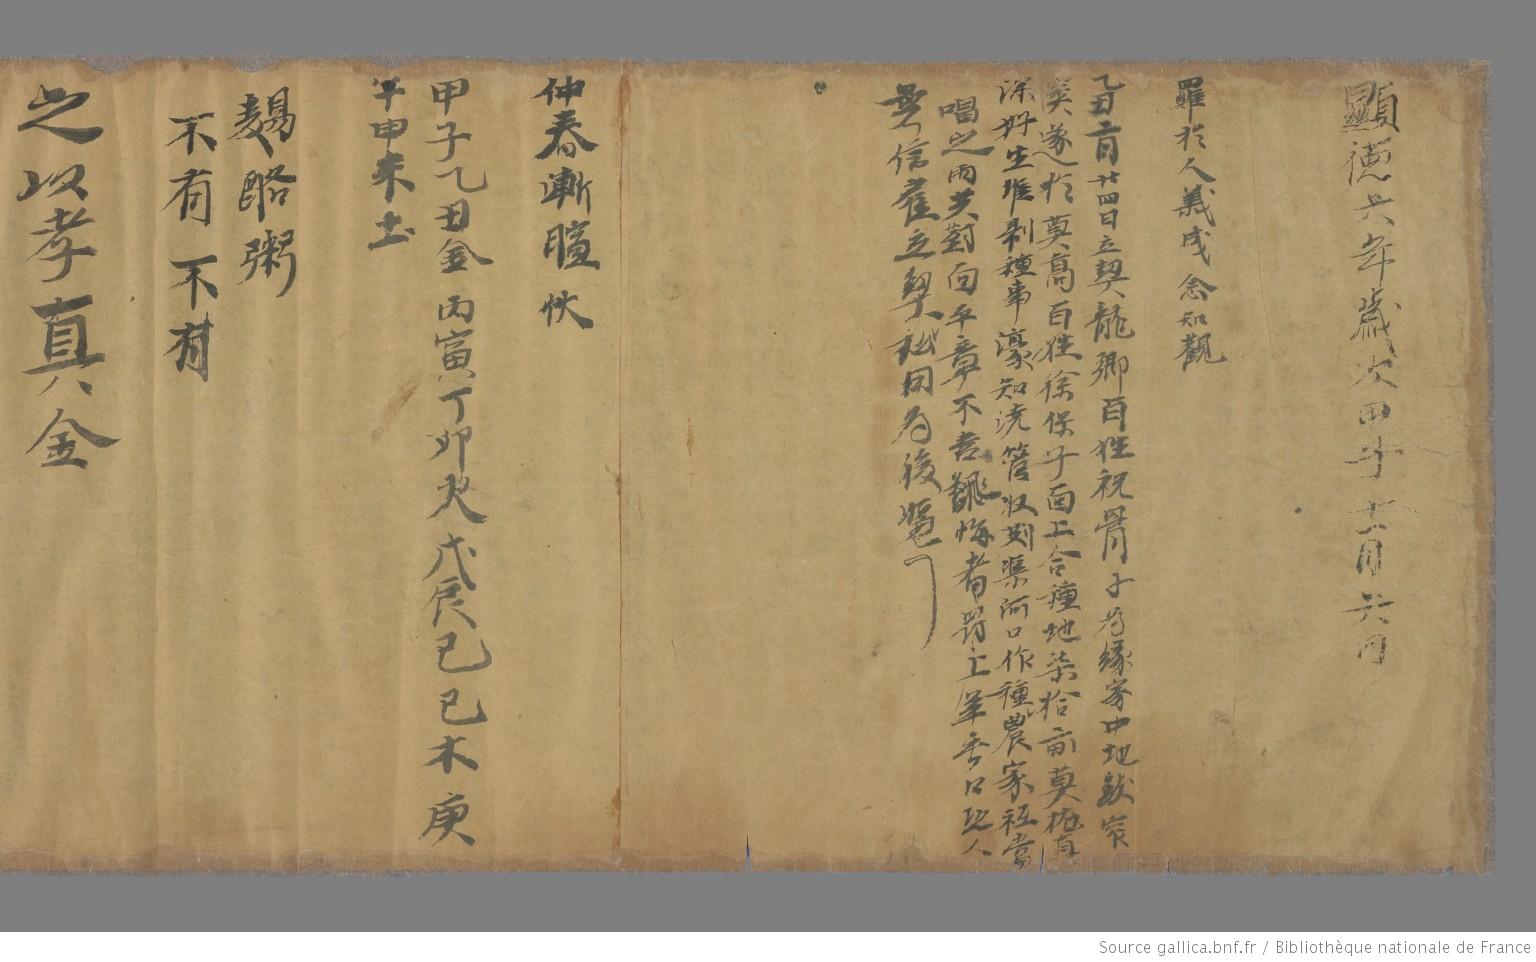 顯德六年歲次田子十二月六日
羅於人義成念知觀
乙丑二月廿四日立契龍鄉百姓祝骨子為緣家中地數窄
遂於莫高百姓徐保子面上合種地柒拾畝莫
深好生堆剥種事濠知澆管收刈渠河口作種農家祗當
唱之兩共對面平章不喜翻悔者罰上羊壹口恐人
無信雇立契私用為後憑
仲春漸暄伏
甲子乙丑金丙寅丁卯火戊辰己巳木庚
午申未土
麨酪粥
不有不有
之以孝真金
Source gallica.bnf.fr / Bibliothèque nationale de France